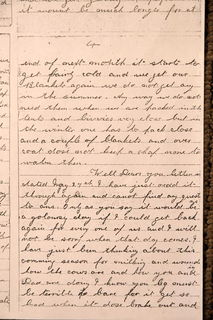 it wount be much longer for it
end of next month it starts to
get fairly cold and we get our
Blankets again we do not get any
in the summer why we do not
need them when we are packed in the
tents and very close but in
the winter one has to pack close
and a couple of blankets and over
coat close and keep a chap more to
warm then.
Well Dear you letter is
stated May 27th I have just read it
through again and cannot find any quest
to ans. Only as you say it would be
a glorious day if I could get back
again for every one of us and I will
not be sorry when that day comes. I
have just been thinking about this
coming season for milking and wounding
how the cows are and how you and
Dad are doing I know you by must
be terrible to have for it get so
bad when it close broke out and